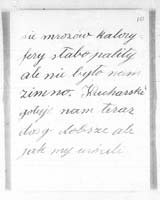 sie mrozów kalory-
fery słabo paliły
ale nie było nam
zimno. Kucharski
gotuje nam teraz
dosyć dobrze ale
jak my